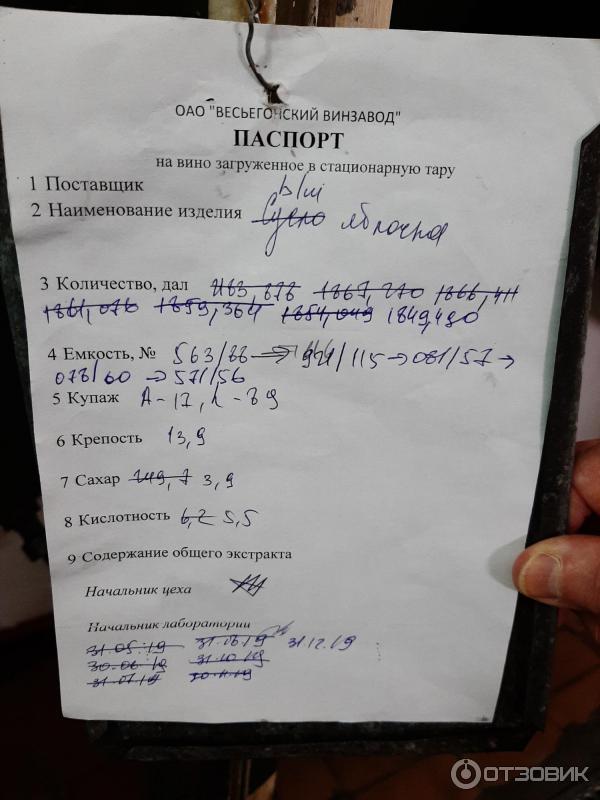 ОАО "ВЕСЬЕГОНСКИЙ ВИНЗАВОД"
ПАСПОРТ
на вино загруженное в стационарную тару
1 Поставщик
2 Наименование изделия яблочная
3 Количество, дал 2163,878 1867,270 1866,411
1861,076 1859,364 1854,049 1849,480
4 Емкость, № 563/88 → /115 → 081/57 →
078/60 → 571/56
5 Купаж А-17,
6 Крепость 13,9
7 Сахар 249,7 3,9
8 Кислотность 6,2 5,5
9 Содержание общего экстракта
Начальник цеха
Начальник лаборатории
31.05.19 31.12.19
30.06.19 31.10.19
31.07.19 30.11.19
ОТЗОВИК